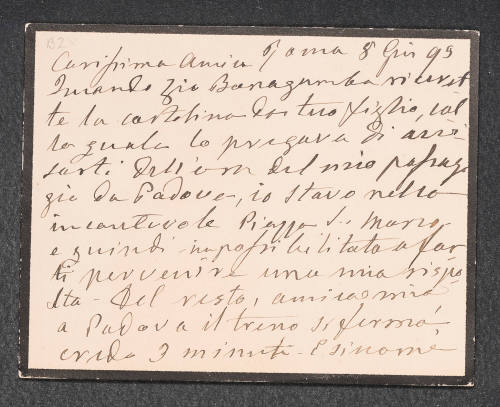 B2
Carissima Amica Roma 8 Giu 95
Quando Zio Baragumba ricevet
te la cartolina da tuo figlio, col
la quale lo pregava di avvi
sarti dell'ora del mio passag
gio da Padova, io stavo nella
incantevole Piazza S. Marco
e quindi impossibilitato a far
ti pervenire una mia rispo
sta - Del resto, amica mia
a Padova il treno si fermò,
credo 3 minuti. E siccome